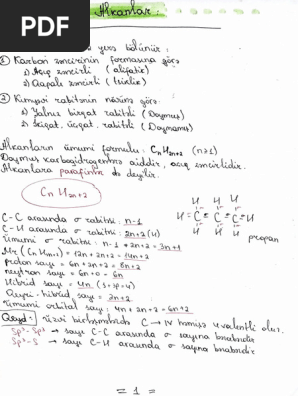 PDF
Alkanlar:
yerə bölünür:
① Karbon zəncirinin formasına görə
1) Açıq zəncirli (alifatik)
2) Qapalı zəncirli (tsiklik)
② Kimyəvi rabitənin növünə görə:
1) Yalnız birqat rabitəli (Doymuş)
2) İkiqat, üçqat rabitəli (Doymamış)
Alkanların ümumi formulu: CnH2n+2 (n≥1)
Doymuş karbohidrogenlərə aiddir, açıq zəncirlidir.
Alkanlara parafinlər də deyilir.
CnH2n+2
H H H
H-C-C-C-H
H H H
propan
C-C arasında σ rabitəsi: n-1
C-H arasında σ rabitəsi: 2n+2 (H)
Ümumi σ rabitəsi: n-1+2n+2=3n+1
Mr(CnH2n+2)=12n+2n+2=14n+2
proton sayı=6n+2n+2=8n+2
neytron sayı=6n+0=6n
Hibrid sayı=4n (s+3p=4)
Qeyri-hibrid sayı=2n+2
Ümumi orbital sayı: 4n+2n+2=6n+2
Qeyd: Üzvi birləşmələrdə C → IV həmişə valentli olur.
Sp³-Sp³ → sayı C-C arasında σ sayına bərabərdir
Sp³-S → sayı C-H arasında σ sayına bərabərdir
= 1 =